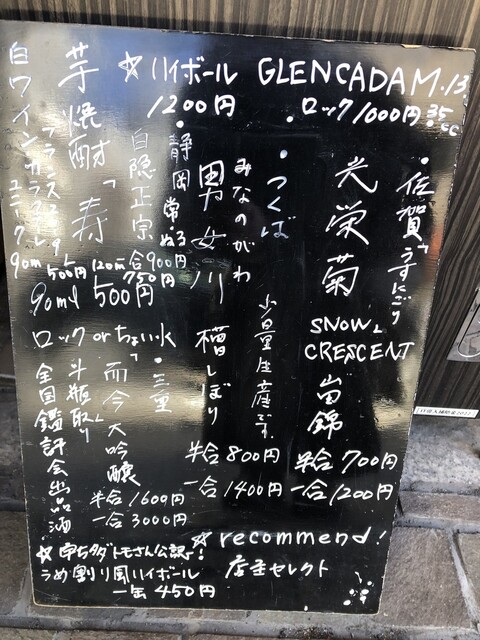 ☆ハイボール GLENCADAM.13
1200円 ロック1000円 35cc
・佐賀「うすにごり
光栄菊
SNOW
CRESCENT
山田錦
半合700円
一合1200円
・つくば
みなのがわ
男女川
槽しぼり
少量生産です。
半合800円
一合1400円
・静岡 常・ぬる
白隠正宗
一合900円
120ml 750円
芋焼酎「寿」
90ml 500円
ロック or ちょい水
白ワイン
90ml 500円
・三重
而今 大吟醸
斗瓶取り
全国鑑評会出品酒
半合1600円
一合3000円
☆recommend!
店主セレクト
うめ割り風ハイボール
一缶450円